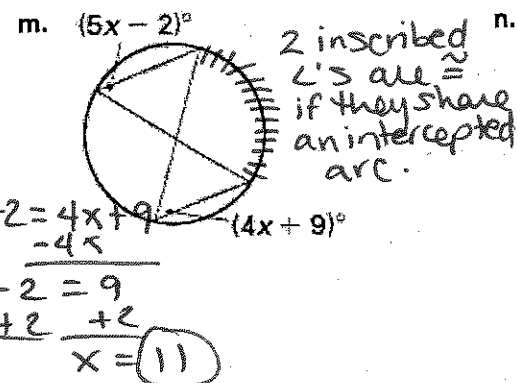 m. (5x − 2)° n.
2 inscribed
∠'s are ≅
if they share
an intercepted
arc.
-2 = 4x + 9
-4x
(4x + 9)°
-2 = 9
+2 +2
x = 11